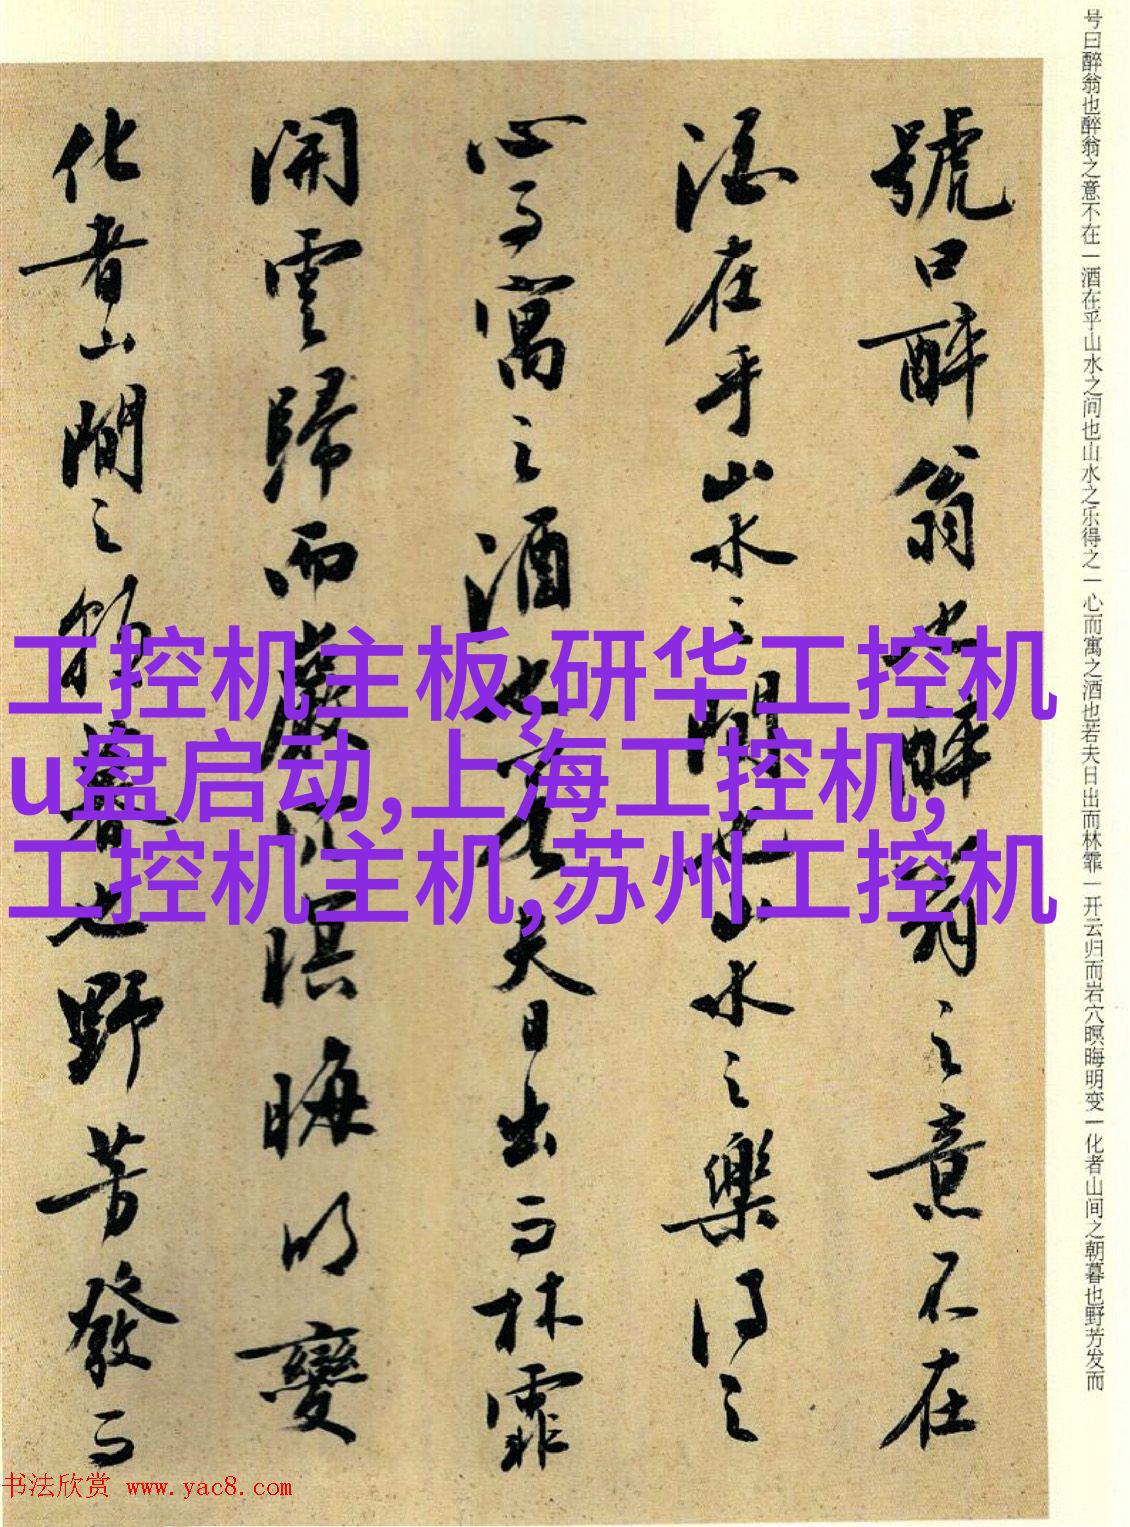 号曰醉翁也醉翁之意不在一酒在乎山水之间也山水之乐得之一心而寓之酒也若夫日出而林霏一开云归而岩穴暝晦明变一化者山间之朝暮也野芳发而
號曰醉翁也醉翁之意不在
酒在乎山水之間也山水之樂得之
心而寓之酒也若夫日出而林霏
開雲歸而巖穴暝晦明變
化者山間之朝暮也野芳發而
工控机主板,研华工控机
u盘启动,上海工控机,
工控机主机,苏州工控机
书法欣赏 www.yac8.com